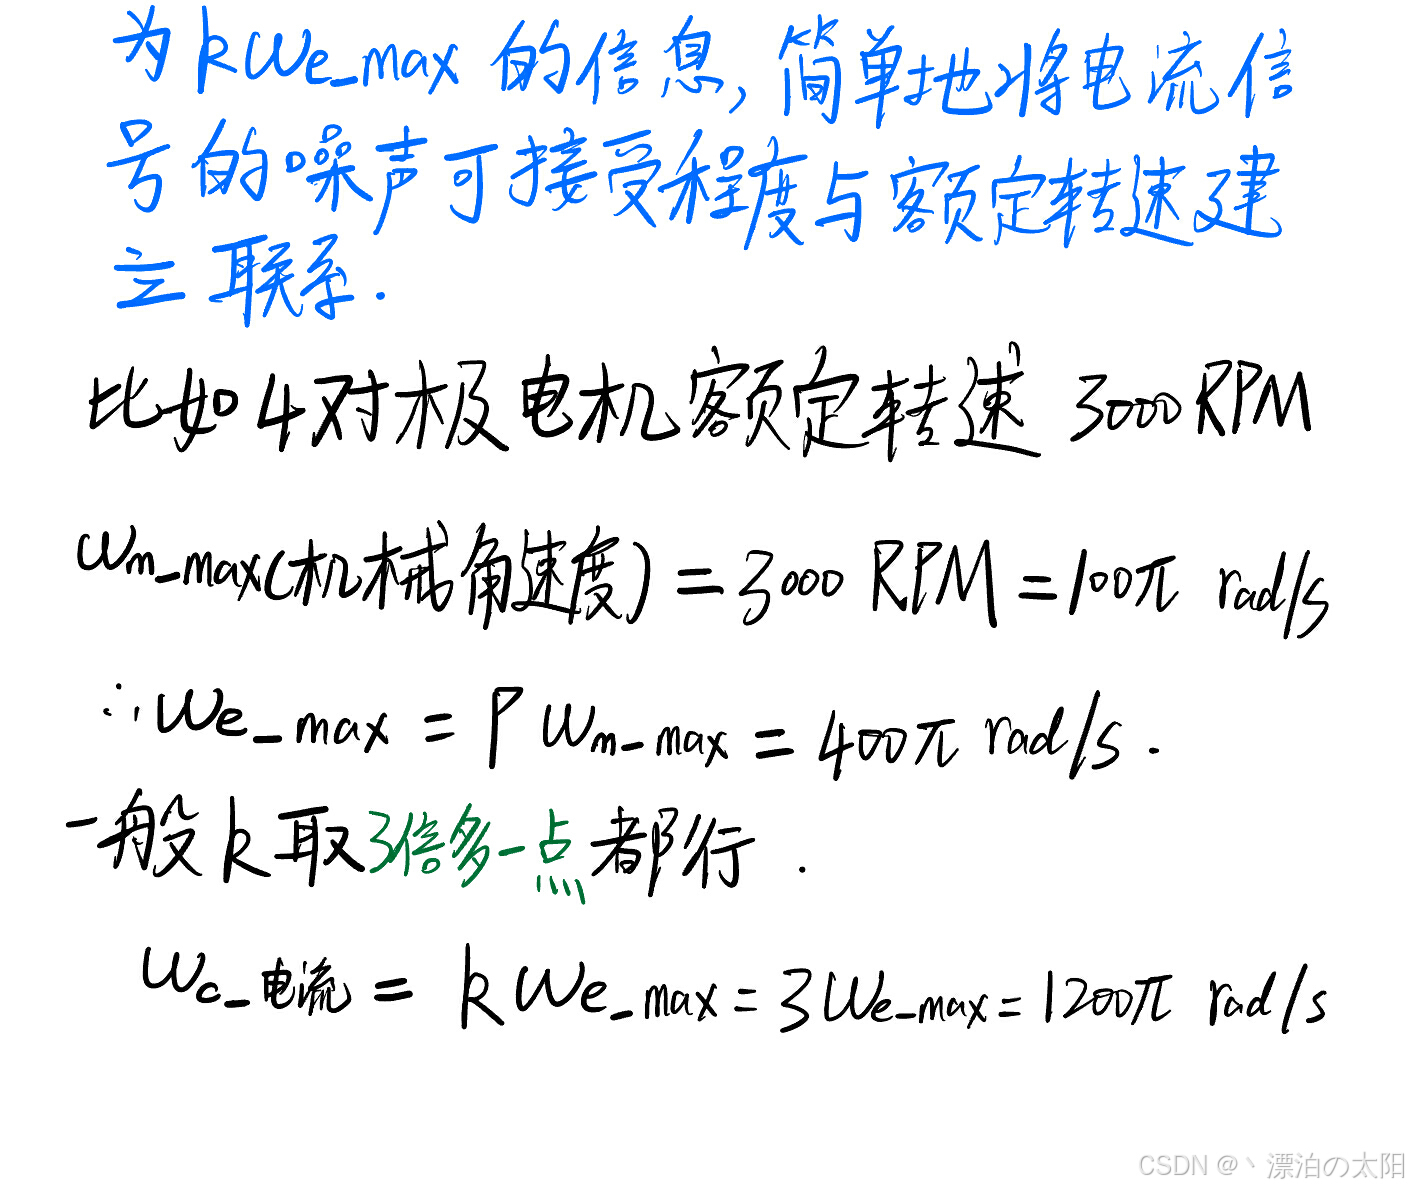 为kωe_max的信息,简单地将电流信
号的噪声可接受程度与额定转速建
立联系.
比如4对极电机额定转速 3000RPM
ωm_max(机械角速度)=3000 RPM=100π rad/s
∴ωe_max = P ωm_max = 400π rad/s.
一般k取3倍多一点都行.
ωc_电流 = kωe_max = 3ωe_max = 1200π rad/s
CSDN @丶漂泊の太阳